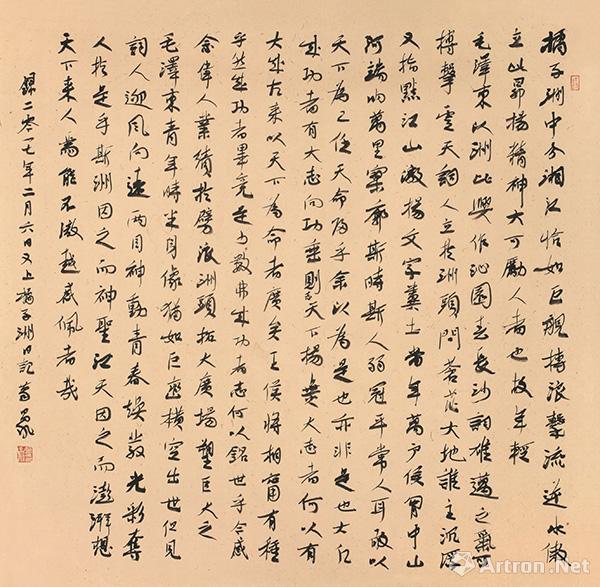 橘子洲中分湘江恰如巨舰搏浪击流逆水傲
立此昂扬精神大可励人者也故年轻
毛泽东以洲比兴作沁园春长沙词雄迈之气可
搏击云天词人立于洲头问苍茫大地谁主沉浮
又指点江山激扬文字粪土当年万户侯胸中山
河端的万里寥廓斯时斯人弱冠平常人耳敢以
天下为己任天命乎余以为是也亦非是也大凡
成功者有大志向功垂则天下扬无大志者何以有
大成古来以天下为命者广矣王侯将相宁有种
乎然成功者毕竟是少数弗成功者志何以铭世乎今感
念伟人业绩于劈浪洲头拓大广场塑巨大之
毛泽东青年时半身像犹如巨函横空出世但见
词人迎风向远两目神动青春焕发光彩夺
人于是乎斯洲因之而神圣江天因之而澎湃想
天下来人焉能不激越感佩者哉
录二零一七年二月六日又上橘子洲日记
Artron.Net